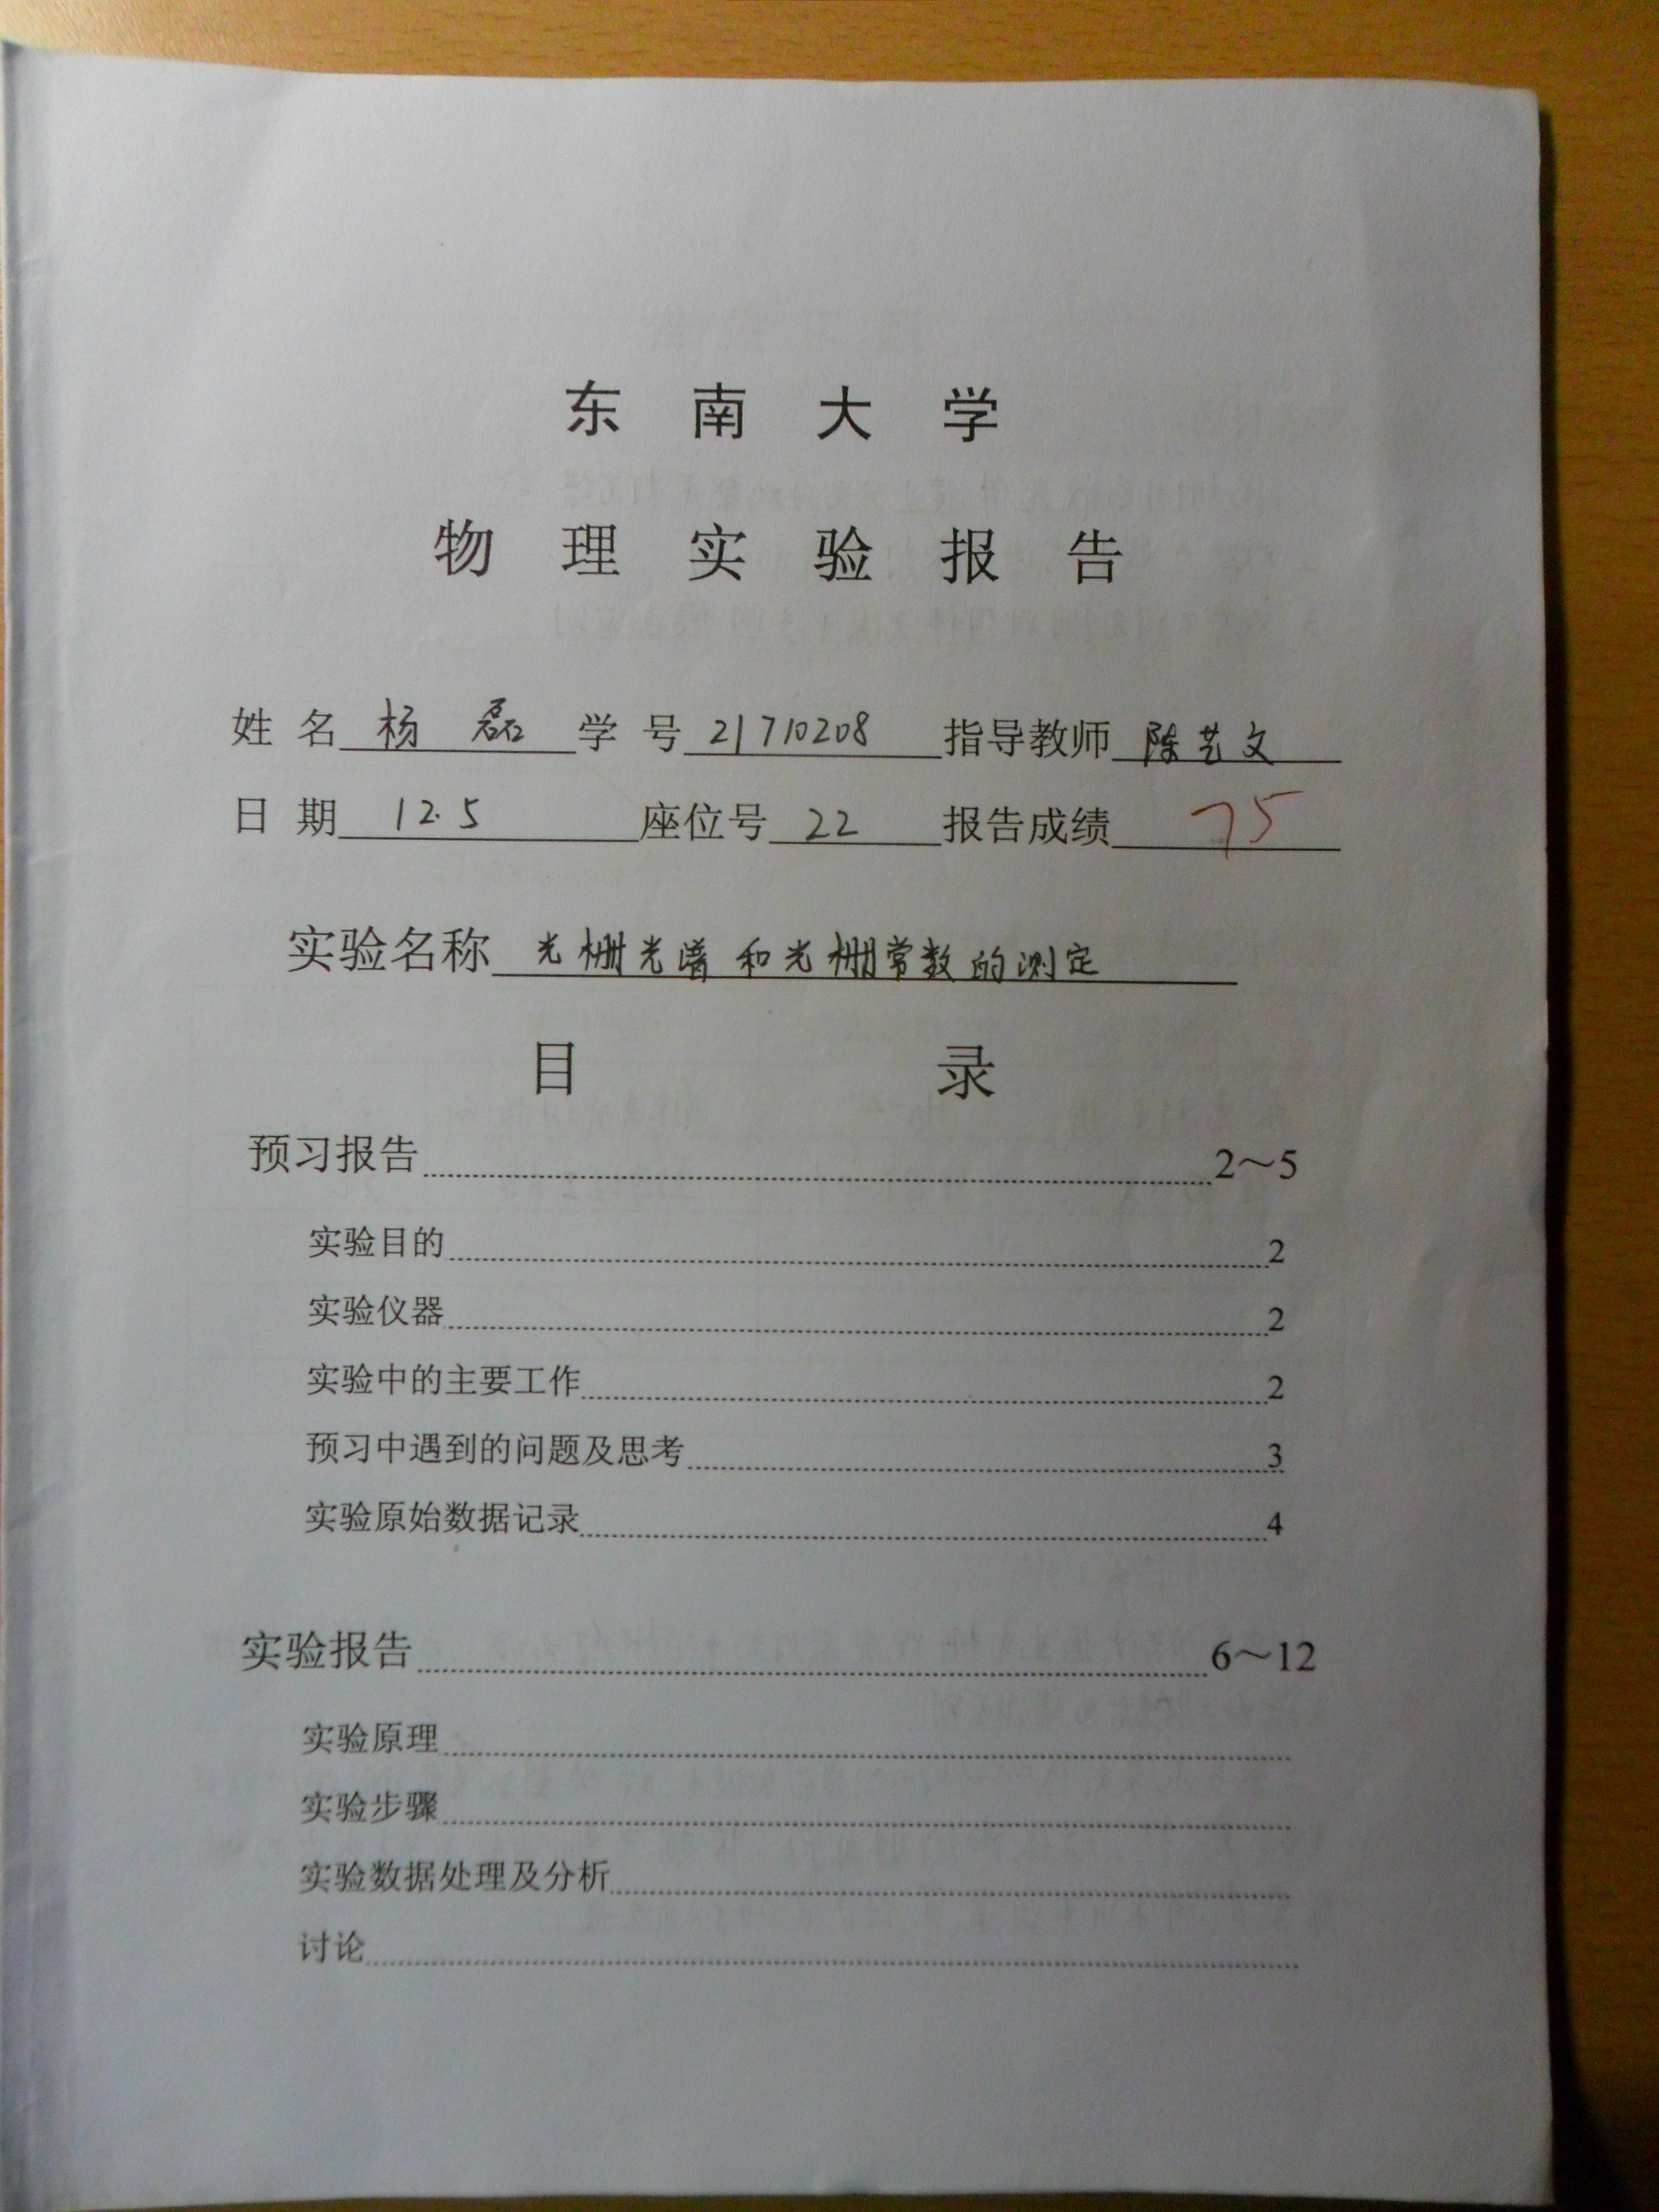 东南大学
物理实验报告
姓名 杨磊 学号 21710208 指导教师 陈艺文
日期 12.5 座位号 22 报告成绩 75
实验名称 光栅光谱和光栅常数的测定
目录
预习报告 2～5
实验目的 2
实验仪器 2
实验中的主要工作 2
预习中遇到的问题及思考 3
实验原始数据记录 4
实验报告 6～12
实验原理
实验步骤
实验数据处理及分析
讨论